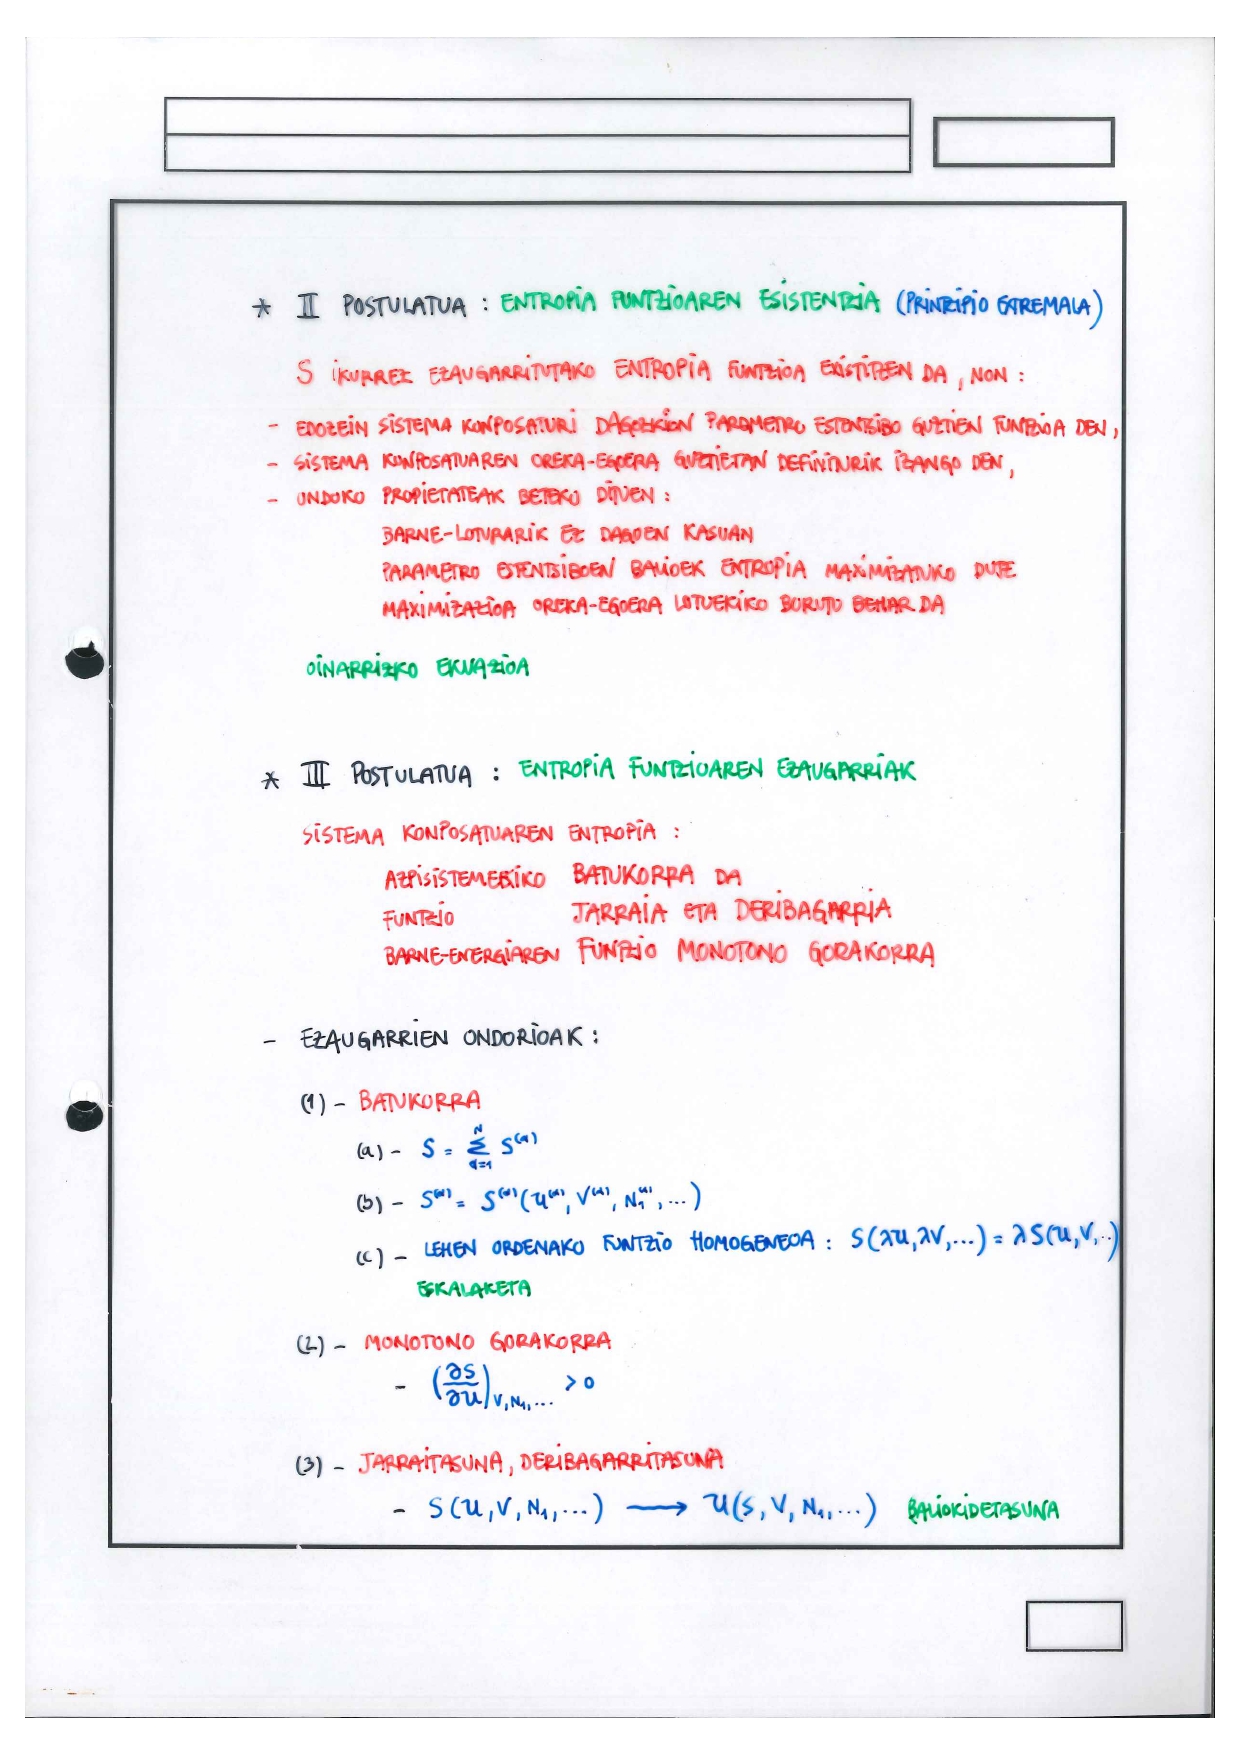 * II POSTULATUA : ENTROPIA FUNTZIOAREN ESISTENTZIA (PRINTZIPIO EXTREMALA)
S IKURREZ EZAUGARRITUTAKO ENTROPIA FUNTZIOA EXISTITZEN DA, NON :
- EDOZEIN SISTEMA KONPOSATURI DAGOZKION PARAMETRO ESTENTSIBO GUZTIEN FUNTZIOA DEN,
- SISTEMA KONPOSATUAREN OREKA-EGOERA GUZTIETAN DEFINITURIK IZANGO DEN,
- ONDOKO PROPIETATEAK BETEKO DITUEN :
BARNE-LOTURARIK EZ DAGOEN KASUAN
PARAMETRO ESTENTSIBOEN BALIOEK ENTROPIA MAXIMIZATUKO DUTE
MAXIMIZAZIOA OREKA-EGOERA LOTUEKIKO BURUTU BEHAR DA
OINARRIZKO EKUAZIOA
* III POSTULATUA : ENTROPIA FUNTZIOAREN EZAUGARRIAK
SISTEMA KONPOSATUAREN ENTROPIA :
AZPISISTEMEKIKO BATUKORRA DA
FUNTZIO JARRAIA ETA DERIBAGARRIA
BARNE-ENERGIAREN FUNTZIO MONOTONO GORAKORRA
- EZAUGARRIEN ONDORIOAK :
(1) - BATUKORRA
(a) - S = ∑_{α=1}^{N} S^{(α)}
(b) - S^{(α)} = S^{(α)}(U^{(α)}, V^{(α)}, N_1^{(α)}, ...)
(c) - LEHEN ORDENAKO FUNTZIO HOMOGENEOA : S(λU, λV, ...) = λS(U, V, ..)
ESKALAKETA
(2) - MONOTONO GORAKORRA
- (∂S/∂U)_{V, N_1, ...} > 0
(3) - JARRAITASUNA, DERIBAGARRITASUNA
- S(U, V, N_1, ...) ⟶ U(S, V, N_1, ...) BALIOKIDETASUNA